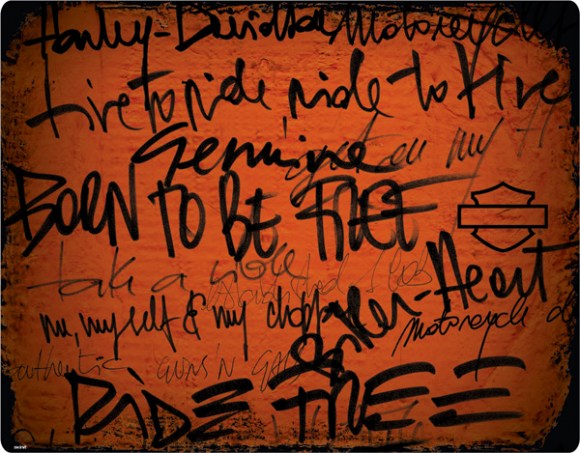 Harley-Davidson Motorcycle
Live to ride, ride to live
Genuine get on my
BORN TO BE FREE
take a ride
me, myself & my chopper
Biker-Heart
Motorcycle
authentic GUNS'N
RIDE FREE